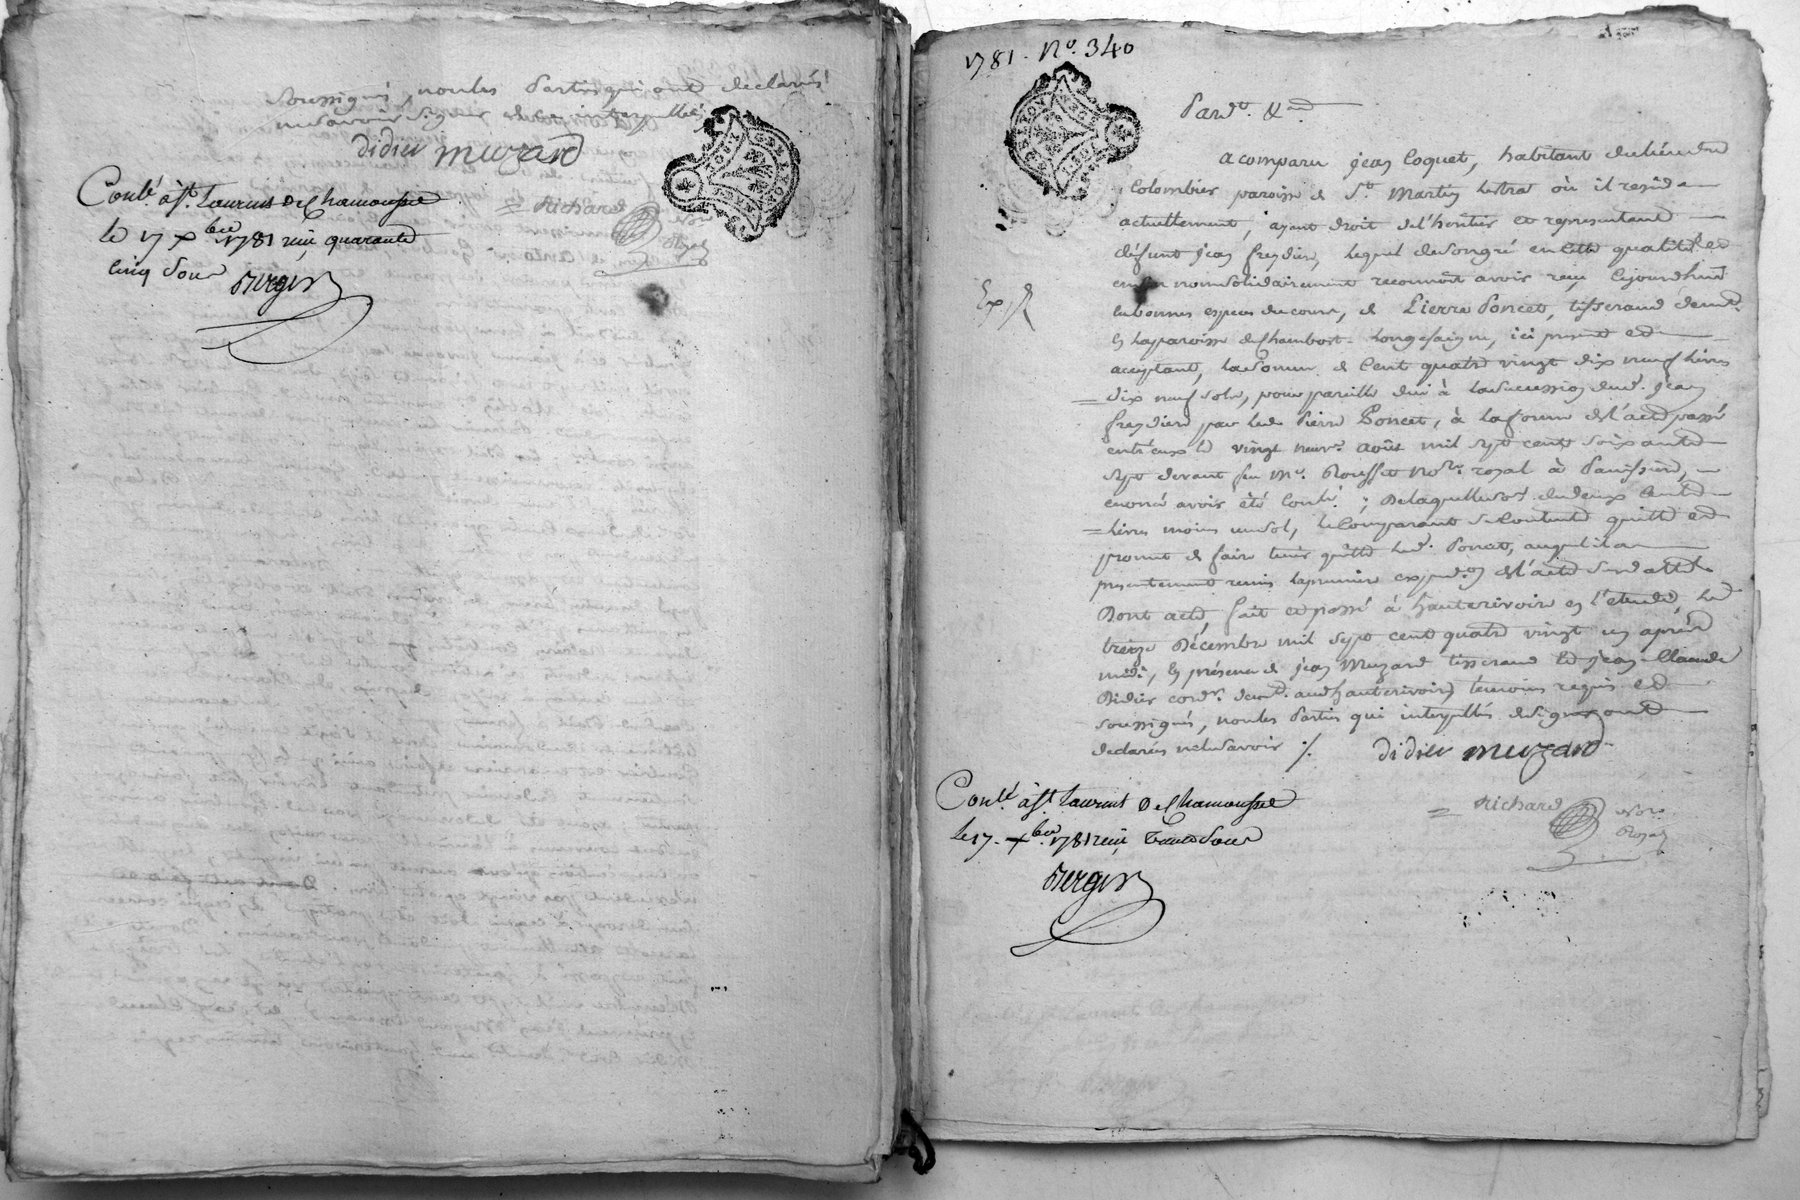 soussignés, non les parties qui ont declarés
ne savoir signer de ce interpellés
didier muzard
Conlé. à st. Laurent De Chamousset
= Richard
le 17 xbre. 1781 reçu quarante
Cinq sous
Berger
Not. Royal
1781. No. 340
Pardt. &a.
a comparu jean Coquet, habitant du lieu du
Colombier paroisse de St. Martin Lestrat où il reside
actuellement, ayant droit de l'heritier et representant
défunt jean freydier, lequel de son gré en cette qualité et
non solidairement reconnoit avoir reçu cejourdhui
en bonnes especes du cours, de Pierre Poncet, tisserand demt.
Ex.
en la paroisse de Chambost-Longesaigne, ici present et
acceptant, la somme de Cent quatre vingt dix neuf livres
dix neuf sols, pour pareille due à la succession dud. jean
freydier par led. Pierre Poncet, à la forme de l'acte passé
entr'eux le vingt neuf. août mil sept cent soixante
sept devant feu Me. Rousset Nore. royal à Panissiere,
enoncé avoir été Conlé.; De laquelle so. de deux Cents
livres moins un sol, le Comparant se Contente quitte et
promet de faire tenir quitte led. Poncet, auquel il a
presentement remis la premiere expedon. de l'acte sus datté.
Dont acte, fait et passé à hauterivoire en l'etude, le
treize Décembre mil sept cent quatre vingt un après
midi, en présence de jean Muzard tisserand et jean-Claude
Didier cordr. demt. aud. hauterivoire, témoins requis et
soussignés, non les parties qui interpellés de signer ont
declarés ne le savoir ./.
didier muzard
Conlé. à st. Laurent De Chamousset
= Richard
Nore.
Royal
le 17. xbre. 1781 reçu trente sous
Berger